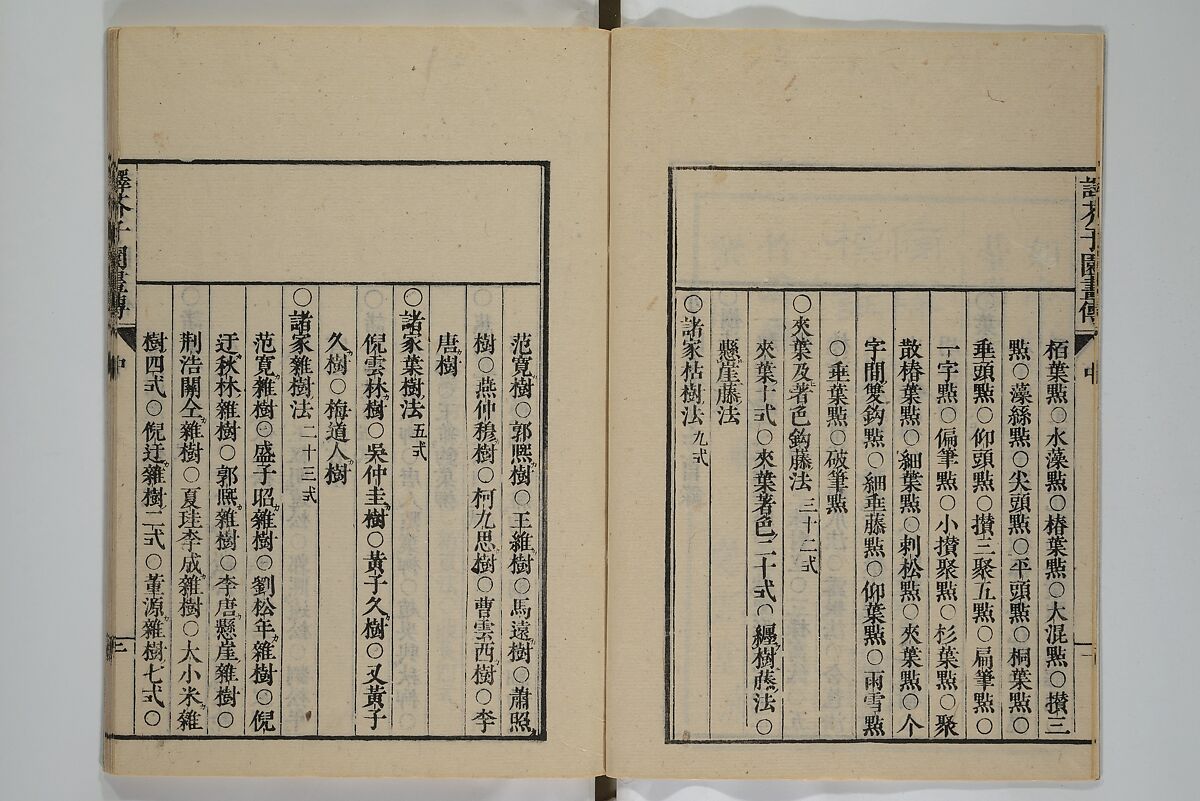 譯芥子園畫傳
中
一
栢葉點○水藻點○椿葉點○大混點○攅三
點○藻絲點○尖頭點○平頭點○桐葉點○
垂頭點○仰頭點○攅三聚五點○扁筆點○
一字點○偏筆點○小攅聚點○杉葉點○聚
散椿葉點○細葉點○刺松點○夾葉點○个
字間雙鈎點○細垂藤點○仰葉點○雨雪點
○垂葉點○破筆點
○夾葉及著色鈎藤法 三十二式
夾葉十式○夾葉著色二十式○纒樹藤法○
懸崖藤法
○諸家枯樹法 九式
范寬樹○郭熈樹○王維樹○馬遠樹○蕭照
樹○燕仲穆樹○柯九思樹○曹雲西樹○李
唐樹
○諸家葉樹法 五式
倪雲林樹○吳仲圭樹○黃子久樹○又黃子
久樹○梅道人樹
○諸家雜樹法 二十三式
范寬雜樹○盛子昭雜樹○劉松年雜樹○倪
迂秋林雜樹○郭熈雜樹○李唐懸崖雜樹○
荆浩關仝雜樹○夏珪李成雜樹○大小米雜
樹四式○倪迂雜樹二式○董源雜樹七式○
譯芥子園畫傳
中
二